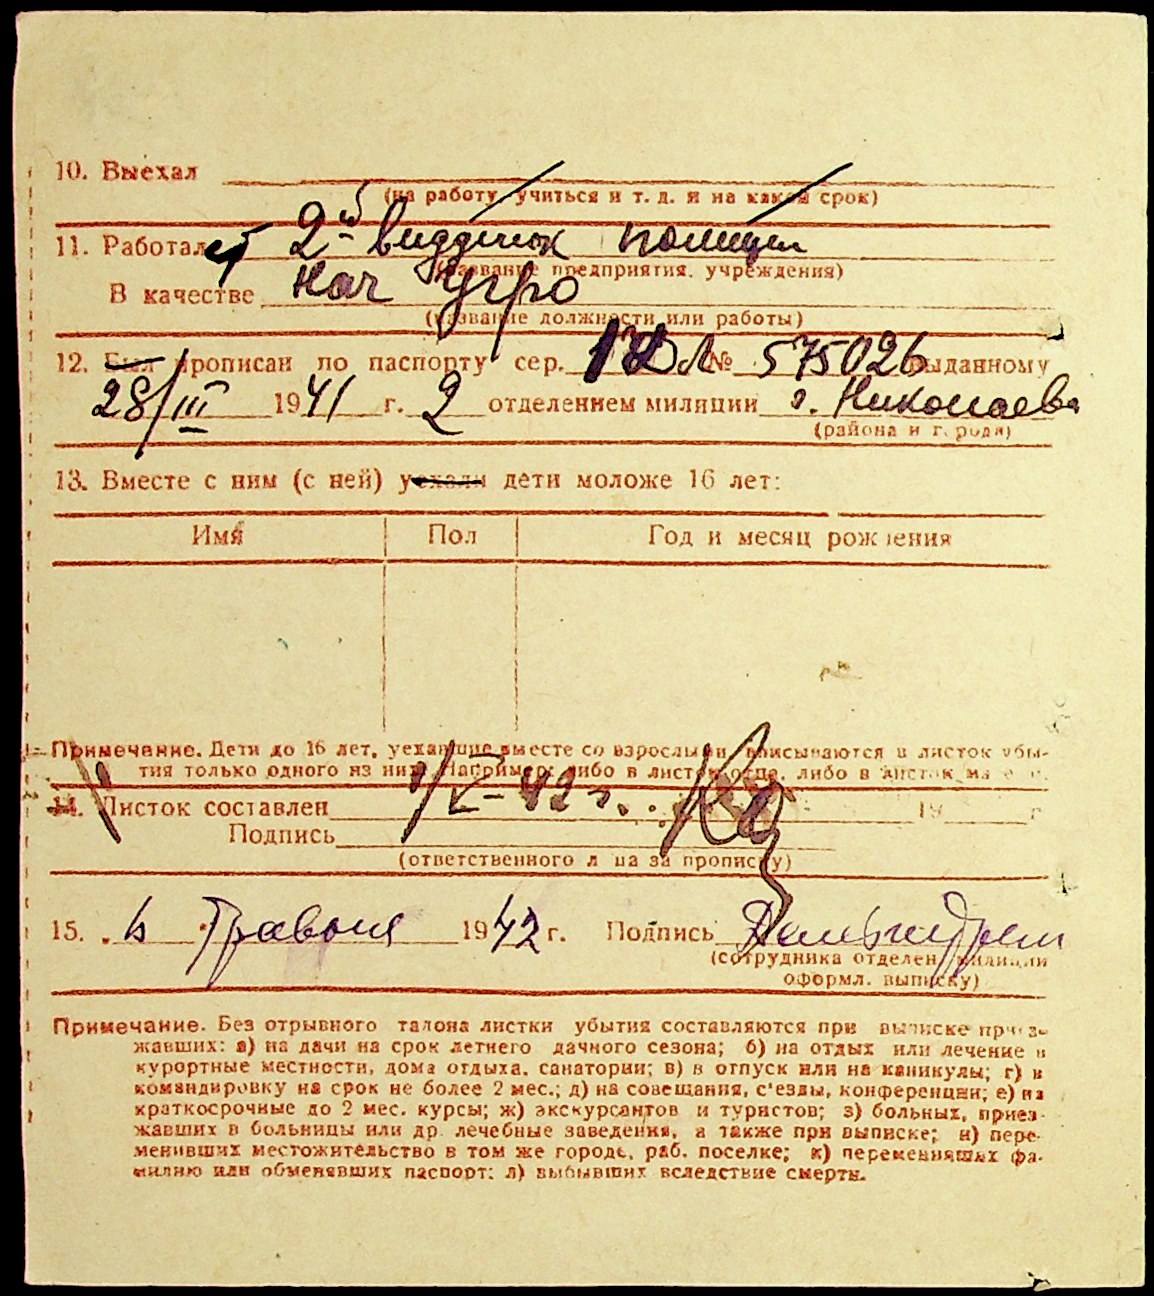 10. Выехал
(на работу, учиться и т. д. и на какой срок)
11. Работает 2й видділок поліции
(название предприятия, учреждения)
В качестве Нач Угро
(название должности или работы)
12. Был прописан по паспорту сер. № 575026 выданному
28/III 1941 г. 2 отделением милиции г. Николаева
(района и города)
13. Вместе с ним (с ней) уехали дети моложе 16 лет:
Имя Пол Год и месяц рождения
Примечание. Дети до 16 лет, уехавшие вместе со взрослыми, вписываются в листок убы-
тия только одного из них. Например: либо в листок отца, либо в листок ма
14. Листок составлен 1/V-42 г. 19 г
Подпись
(ответственного лица за прописку)
15. 6 Травня 1942 г. Подпись
(сотрудника отделен. милиции
оформл. выписку)
Примечание. Без отрывного талона листки убытия составляются при выписке приез-
жавших: а) на дачи на срок летнего дачного сезона; б) на отдых или лечение в
курортные местности, дома отдыха, санатории; в) в отпуск или на каникулы; г) в
командировку на срок не более 2 мес.; д) на совещания, с'езды, конференции; е) на
краткосрочные до 2 мес. курсы; ж) экскурсантов и туристов; з) больных, приез-
жавших в больницы или др. лечебные заведения, а также при выписке; и) пере-
менивших местожительство в том же городе, раб. поселке; к) переменивших фа-
милию или обменявших паспорт; л) выбывших вследствие смерти.